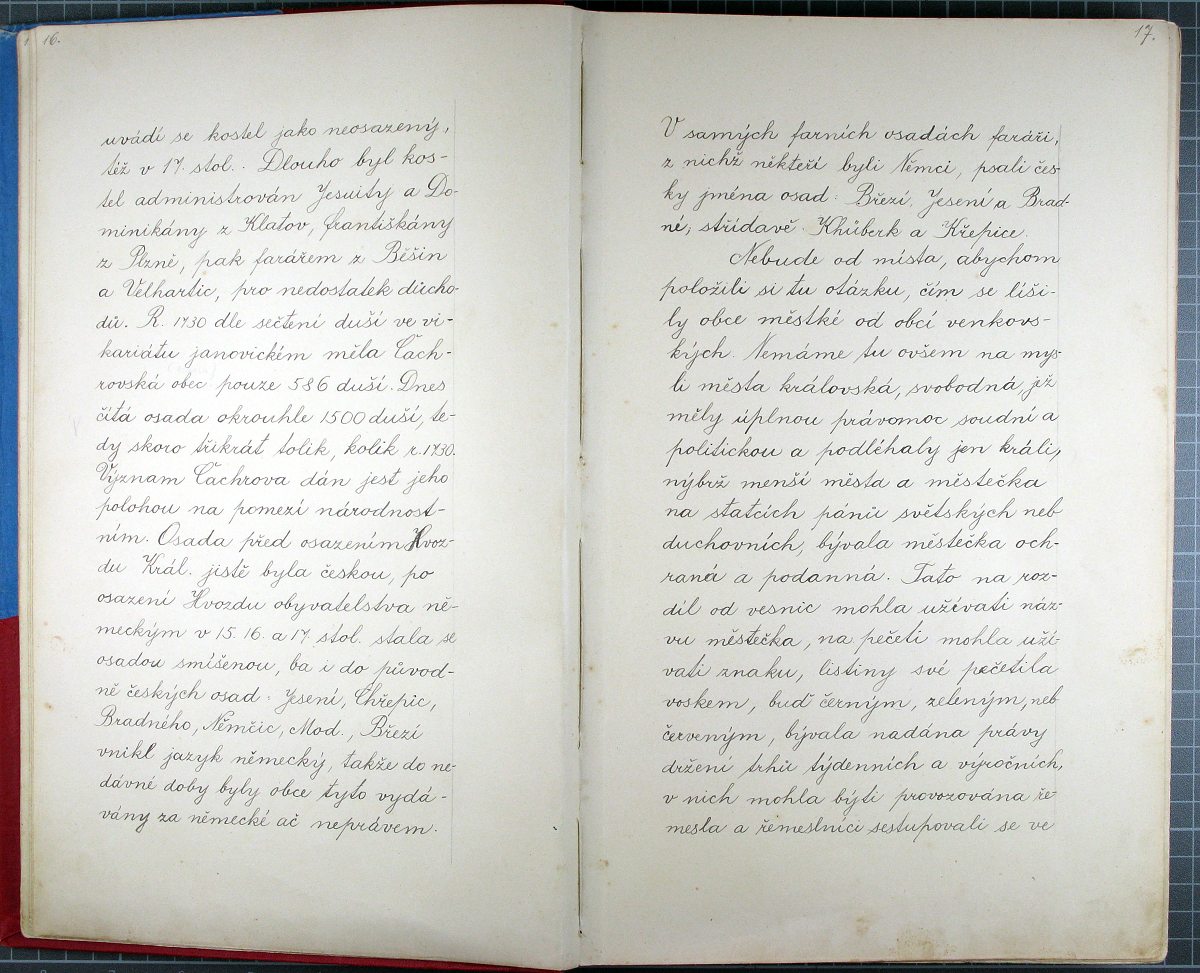 16.
uvádí se kostel jako neosazený,
též v 17. stol. Dlouho byl kos-
tel administrován Jesuity a Do-
minikány z Klatov, františkány
z Plzně, pak farářem z Běšin
a Velhartic, pro nedostatek důcho-
dů. R. 1730 dle sečtení duší ve vi-
kariátu janovickém měla Čach-
rovská obec pouze 586 duší. Dnes
čítá osada okrouhle 1500 duší, te-
dy skoro třikrát tolik, kolik r. 1730.
Význam Čachrova dán jest jeho
polohou na pomezí národnost-
ním. Osada před osazením Hvoz-
du Král. jistě byla českou, po
osazení Hvozdu obyvatelstva ně-
meckým v 15. 16. a 17. stol. stala se
osadou smíšenou, ba i do původ-
ně českých osad: Jesení, Chřepic,
Bradného, Němčic, Mod., Březí
vnikl jazyk německý, takže do ne-
dávné doby byly obce tyto vydá-
vány za německé ač neprávem.
17.
V samých farních osadách faráři,
z nichž někteří byli Němci, psali čes-
ky jména osad: Březí, Jesení a Brad-
né, střídavě Khüberk a Křepice.
Nebude od místa, abychom
položili si tu otázku, čím se líši-
ly obce městké od obcí venkovs-
kých. Nemáme tu ovšem na mys-
li města královská, svobodná, jež
měly úplnou právomoc soudní a
politickou a podléhaly jen králi,
nýbrž menší města a městečka
na statcích pánů světských neb
duchovních, bývala městečka och-
raná a podanná. Tato na roz-
díl od vesnic mohla užívati náz-
vu městečka, na pečeti mohla uží-
vati znaku, listiny své pečetila
voskem, buď černým, zeleným, neb
červeným, bývala nadána právy
držení trhů týdenních a výročních,
v nich mohla býti provozována ře-
mesla a řemeslníci sestupovali se ve